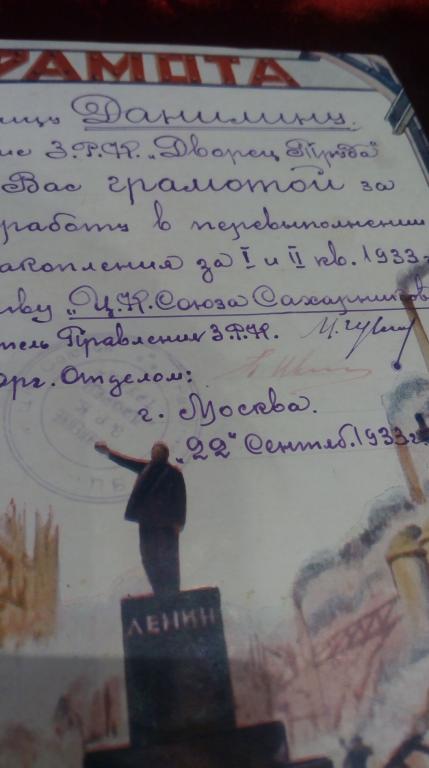 РАМОТА
Данилину.
З.Р.К. „Дворец Труда"
Вас грамотой за
работу в перевыполнении
акопления за I и II кв. 1933г.
ву „Ц.К. Союза Сахарников
тель Правления З.Р.К.
орг. Отделом:
г. Москва.
„22" Сентяб. 1933г.
ЛЕНИН